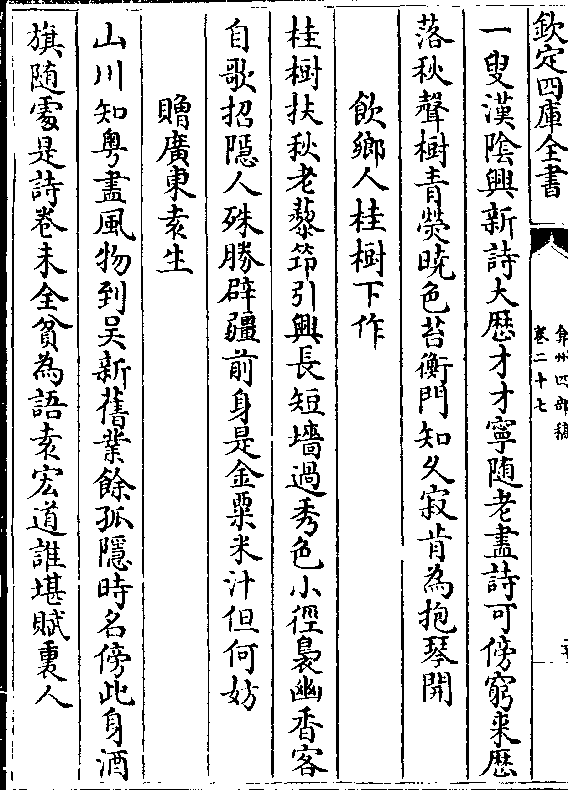 欽定四庫全書
弇州四部稿
卷二十七
一叟漢陰興新詩大歴才才寧随老盡詩可傍窮来歴
落秋聲樹青熒曉色苔衡門知久寂肯為抱琴開
飲鄉人桂樹下作
桂樹扶秋老藜笻引興長短墻過秀色小徑裊幽香客
自歌招隱人殊勝辟疆前身是金粟米汁但何妨
贈廣東袁生
山川知粤盡風物到吴新舊業餘孤隱時名傍此身酒
旗随處是詩卷未全貧為語袁宏道誰堪賦裏人